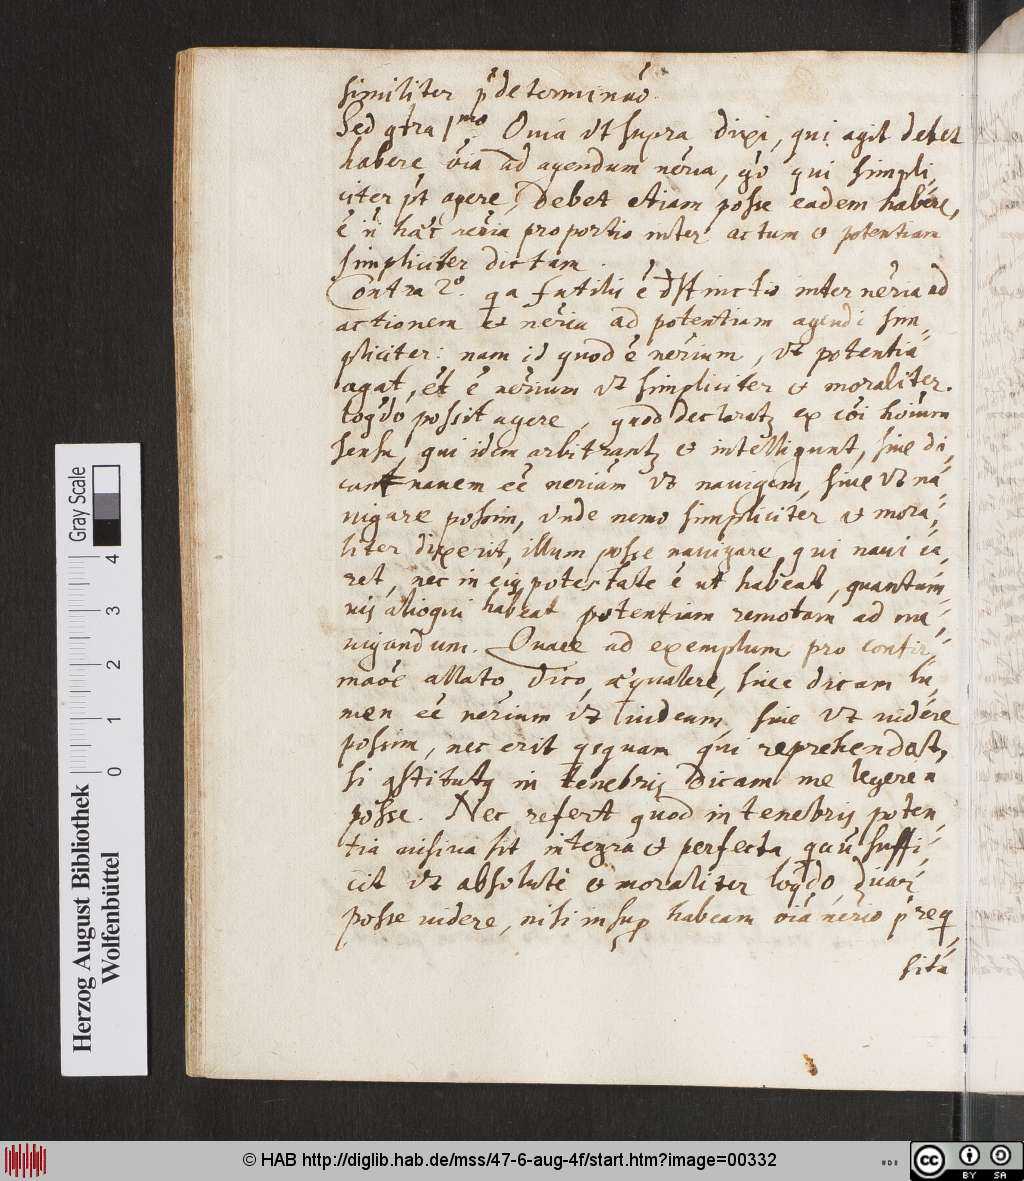 similiter p̄determinaō.
Sed qtra 1mo. Oīa vt supra dixi, qui agit debet
habere oīa ad agendum nēria, gō qui simpli,
citer pt̄ agere, Debet etiam posse eadem habere,
simpliciter dictam
Contra 2o. qa futilis ē dīstinctio inter nēria ad
actionem et nēria ad potentiam agendi sim,
pliciter: nam id quod ē nērium, vt potentia
agat, ēt ē nērium vt simpliciter et moraliter
loqdo possit agere, quod declaratz ex cōi hoīum
sensu, qui idem arbitrantz et intelligunt, siue di,
cant nauem eē neriam vt nauigem, siue vt na,
uigare possim, vnde nemo simpliciter et mora,
liter dixerit, illum posse nauigare, qui naui ca,
ret, nec in eis potestate ē ut habeat, quantum
uis alioqui habeat potentiam remotam ad na,
uigandum. Quare ad exemplum pro confir,
maōē allato Dico, æqualere, siue dicam lu,
men eē nērium vt uideam siue vt uidere
possim, nec erit qsquam qui reprehendat,
si qstitutq in tenebris Dicam me legere n
posse. Nec refert quod in tenebris poten,
tia uisiua sit integra et perfecta, quū suffi,
cit vt absolutè et moraliter loqdo dicar
posse uidere, nisi insup habeam oīa nēriō p̄req,
sita
Herzog August Bibliothek
Wolfenbüttel
Gray Scale
0 1 2 3 4
© HAB http://diglib.hab.de/mss/47-6-aug-4f/start.htm?image=00332
cc BY SA